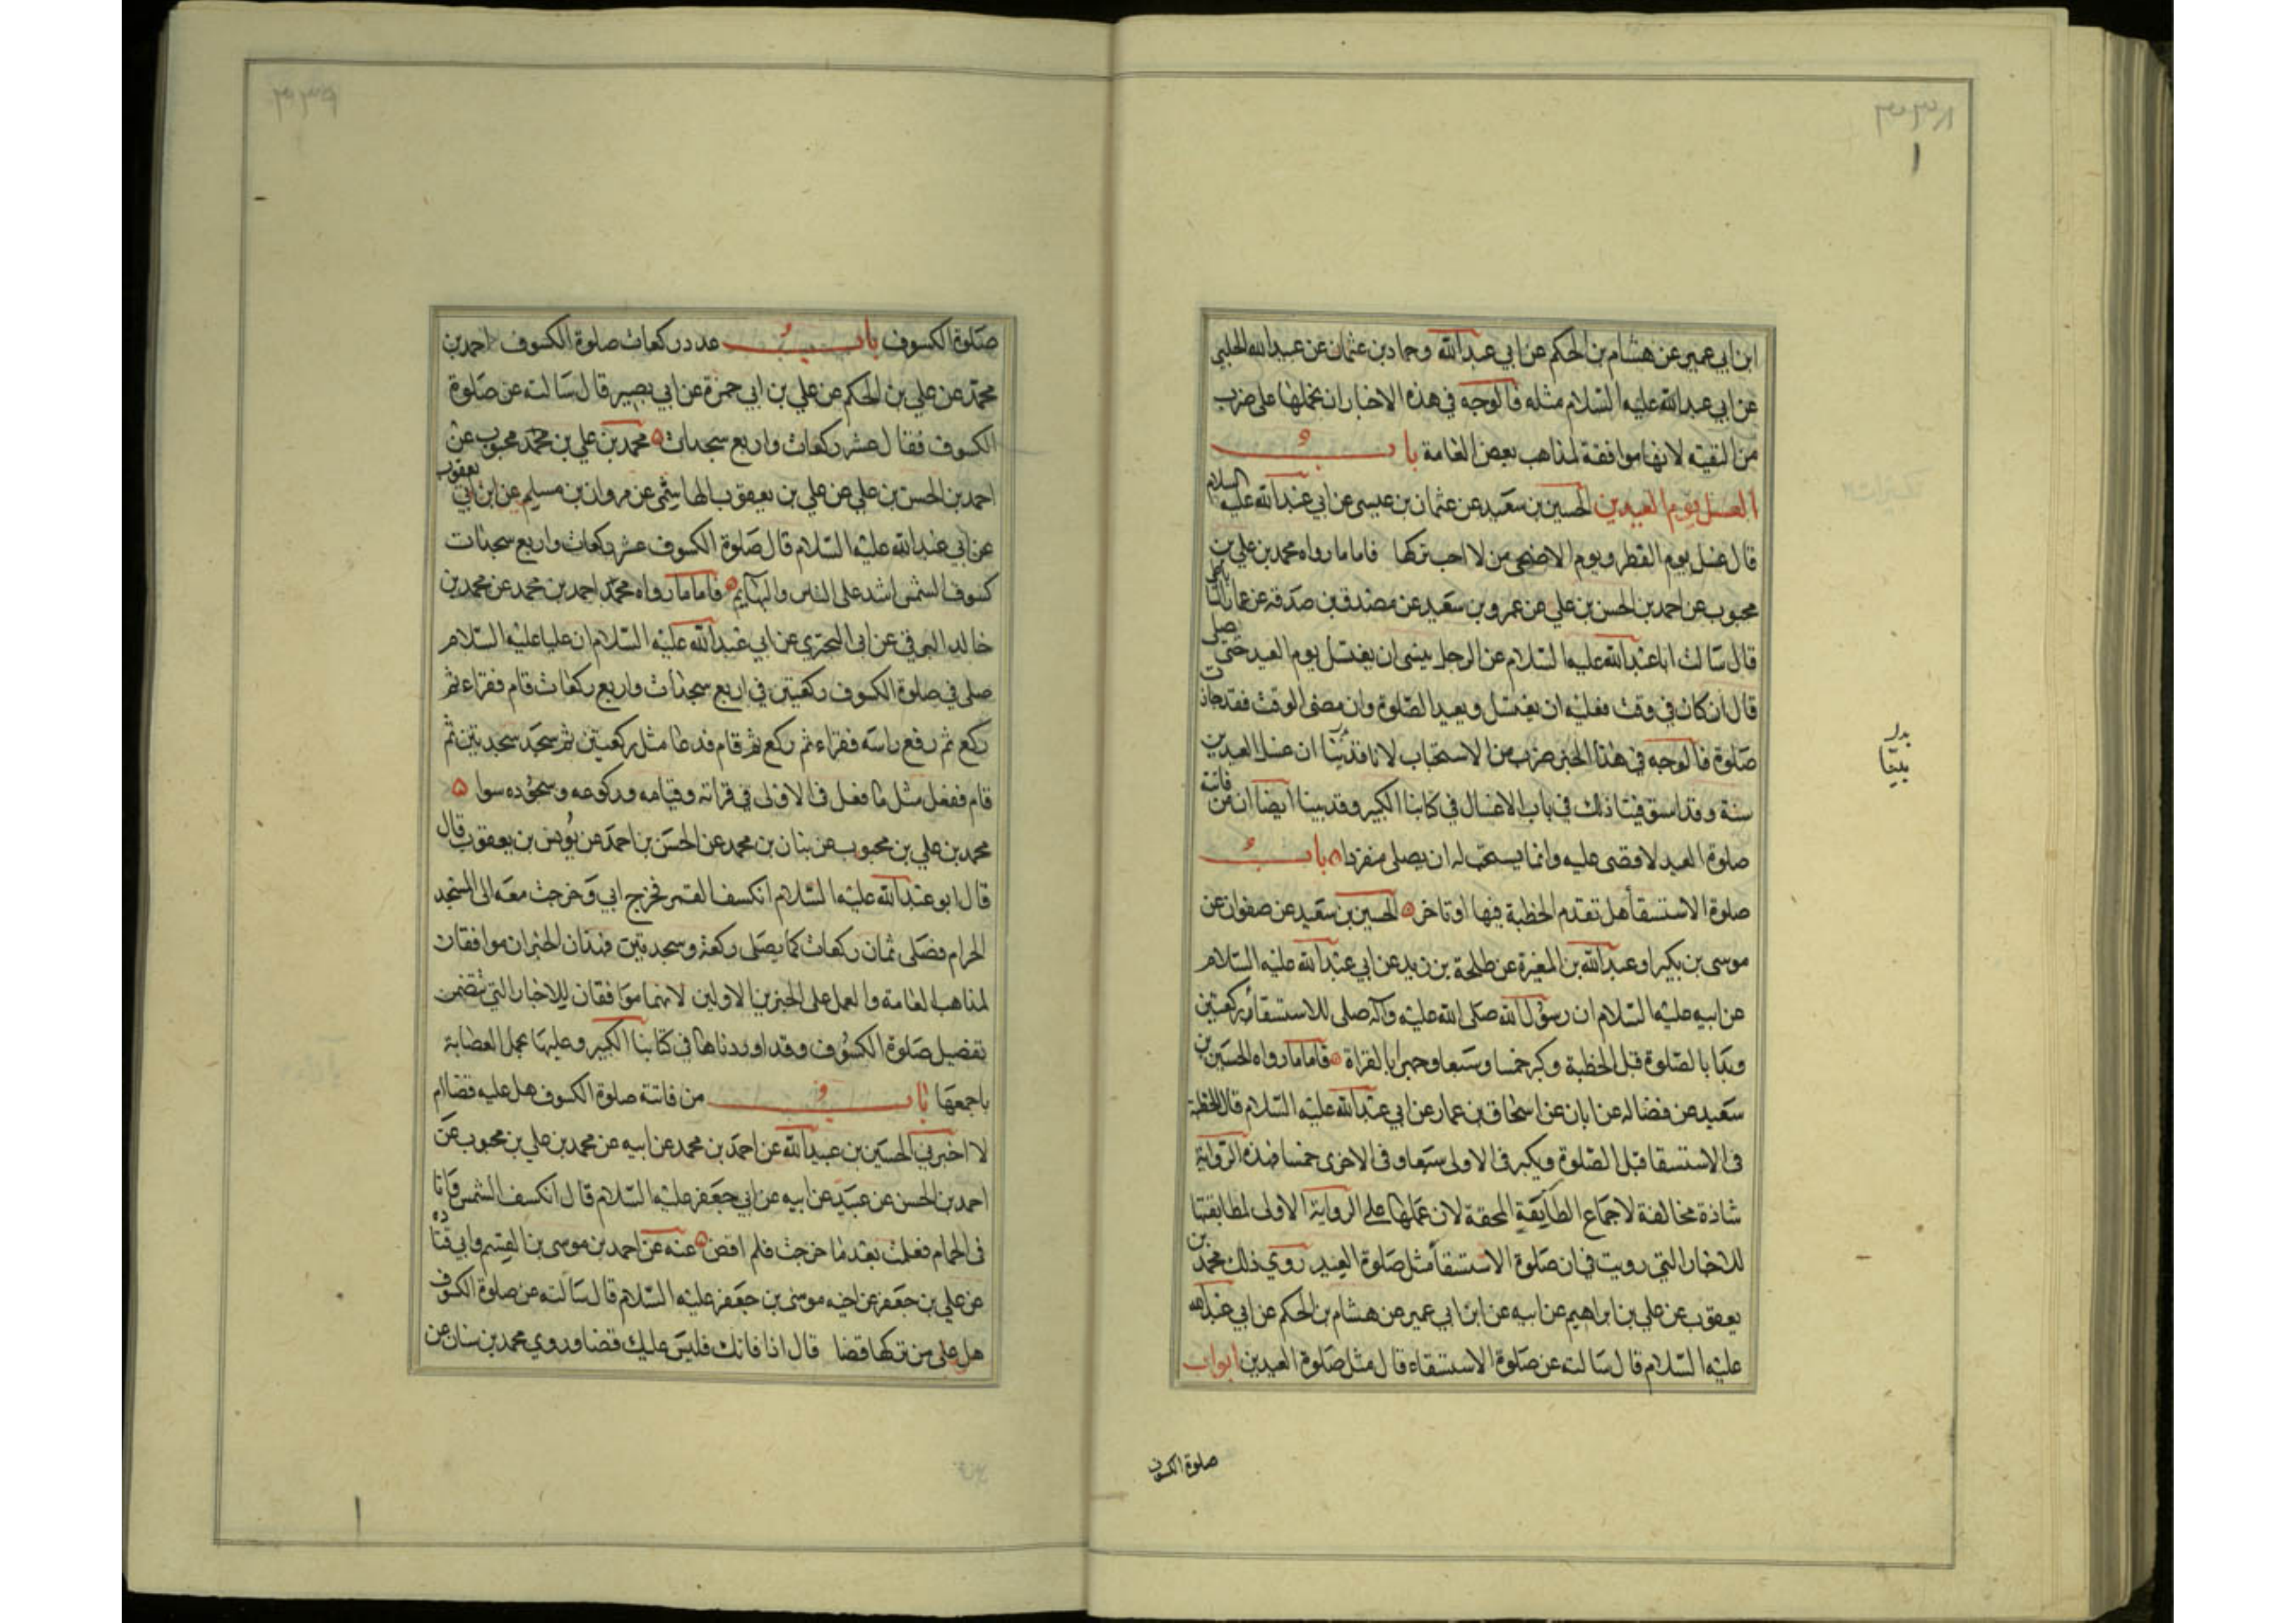 ابن ابي عمير عن هشام بن الحكم عن ابي عبد الله وحماد بن عثمان عن عبد الله الحلبي
عن ابي عبد الله عليه السلام مثله فالوجه في هذه الاخبار ان نحملها على ضرب
من التقية لانها موافقة لمذاهب بعض العامة باب
الغسل يوم العيدين الحسين بن سعيد عن عثمان بن عيسى عن ابي عبد الله عليه السلام
قال غسل يوم الفطر ويوم الاضحى من لا احب تركها فاما ما رواه محمد بن علي بن
محبوب عن احمد بن الحسن بن علي عن عمرو بن سعيد عن مصدق بن صدقه عن عمار الساباطي
قال سالت ابا عبد الله عليه السلام عن الرجل ينسى ان يغتسل يوم العيد حتى يصلي
قال ان كان في وقت فعليه ان يغتسل ويعيد الصلوة وان مضى الوقت فقد جازت
صلوة فالوجه في هذا الخبر ضرب من الاستحباب لانا قد بينا ان غسل العيدين
سنة وقد استوفينا ذلك في باب الاغسال في كتابنا الكبير وقد بينا ايضا ان من فاتته
صلوة العيد لا قضى عليه وانما يستحب له ان يصلي منفردا باب
صلوة الاستسقأ هل تقدم الخطبة فيها او تاخر الحسين بن سعيد عن صفوان عن
موسى بن بكير او عبد الله بن المغيرة عن طلحة بن زيد عن ابي عبد الله عليه السلام
عن ابيه عليه السلام ان رسول الله صلى الله عليه وآله صلى للاستسقأ ركعتين
وبدا بالصلوة قبل الخطبة وكبر خمسا وسبعا وجهر بالقراة فاما ما رواه الحسين بن
سعيد عن فضاله عن ابان عن اسحاق بن عمار عن ابي عبد الله عليه السلام قال الخطبة
في الاستسقا قبل الصلوة ويكبر في الاولى سبعا وفي الاخرى خمسا فهذه الرواية
شاذة مخالفة لاجماع الطايفة المحقة لان عملها على الرواية الاولى لمطابقتها
للاخبار التي رويت في ان صلوة الاستسقأ مثل صلوة العيد روي ذلك محمد بن
يعقوب عن علي بن ابراهيم عن ابيه عن ابن ابي عمير عن هشام بن الحكم عن ابي عبد الله
عليه السلام قال سالته عن صلوة الاستسقاء قال مثل صلوة العيدين ابواب
صلوة الكسوف
صلوة الكسوف باب عدد ركعات صلوة الكسوف احمد بن
محمد عن علي بن الحكم عن علي بن ابي حمزة عن ابي بصير قال سالته عن صلوة
الكسوف فقال عشر ركعات واربع سجدات محمد بن علي بن محمد محبوب عن
احمد بن الحسن بن علي عن علي بن يعقوب الهاشمي عن مروان بن مسلم عن ابن ابي يعقوب
عن ابي عبد الله عليه السلام قال صلوة الكسوف عشر ركعات واربع سجدات
كسوف الشمس اشد على الناس والبهايم فاما ما رواه محمد احمد بن محمد عن محمد بن
خالد البرقي عن ابي البختري عن ابي عبد الله عليه السلام ان عليا عليه السلام
صلى في صلوة الكسوف ركعتين في اربع سجدات واربع ركعات قام فقراء ثم
ركع ثم رفع راسه فقراء ثم ركع ثم قام فدعا مثل ركعتين ثم سجد سجدتين ثم
قام ففعل مثل ما فعل في الاولى في قراته وقيامه وركوعه وسجوده سوا
محمد بن علي بن محبوب عن بنان بن محمد عن الحسن بن احمد عن يونس بن يعقوب قال
قال ابو عبد الله عليه السلام انكسف القمر فخرج ابي وخرجت معه الى المسجد
الحرام فصلى ثمان ركعات كما يصلى ركعة وسجدتين فهذان الخبران موافقان
لمذاهب العامة والعمل على الخبرين الاولين لانهما موافقان للاخبار التي تتضمن
تفصيل صلوة الكسوف وقد اوردناها في كتابنا الكبير وعليها عمل العصابة
باجمعها باب من فاتته صلوة الكسوف هل عليه قضا ام
لا اخبرني الحسين بن عبيد الله عن احمد بن محمد عن ابيه عن محمد بن علي بن محبوب عن
احمد بن الحسن عن عبيد عن ابيه عن ابي جعفر عليه السلام قال انكسف الشمس وانا
في الحمام فعلمت بعد ما خرجت فلم اقض عنه عن احمد بن موسى بن القسم وابي قتاده
عن علي بن جعفر عن اخيه موسى بن جعفر عليه السلام قال سالته عن صلوة الكسوف
هل على من تركها قضا قال اذا فاتك فليس عليك قضا وروي محمد بن سنان عن